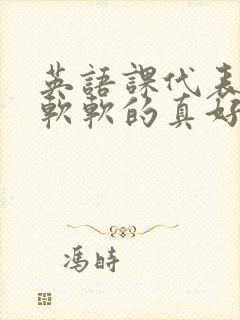 英語課代表
軟軟的真好
馮時